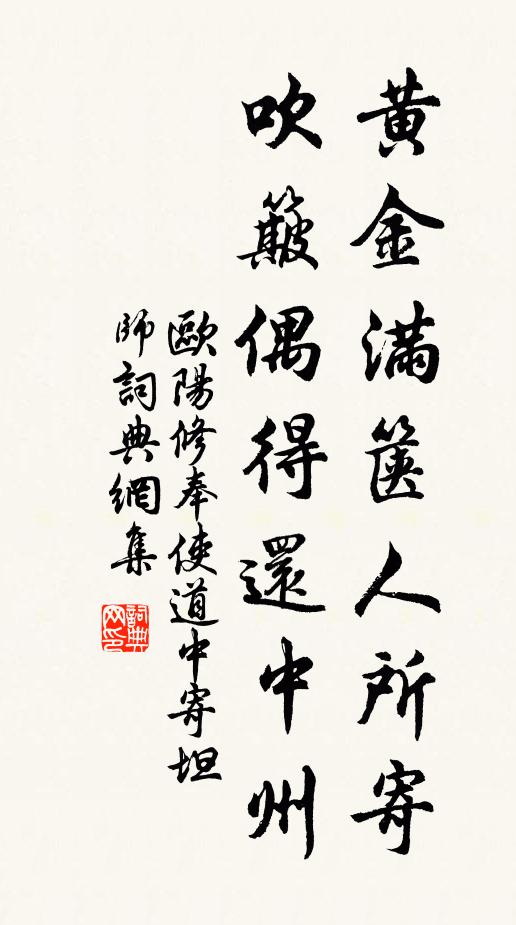 黃金滿篋人所寄
吹簸偶得還中州
歐陽修奉使道中寄坦
師詞典網集
詞典
网印